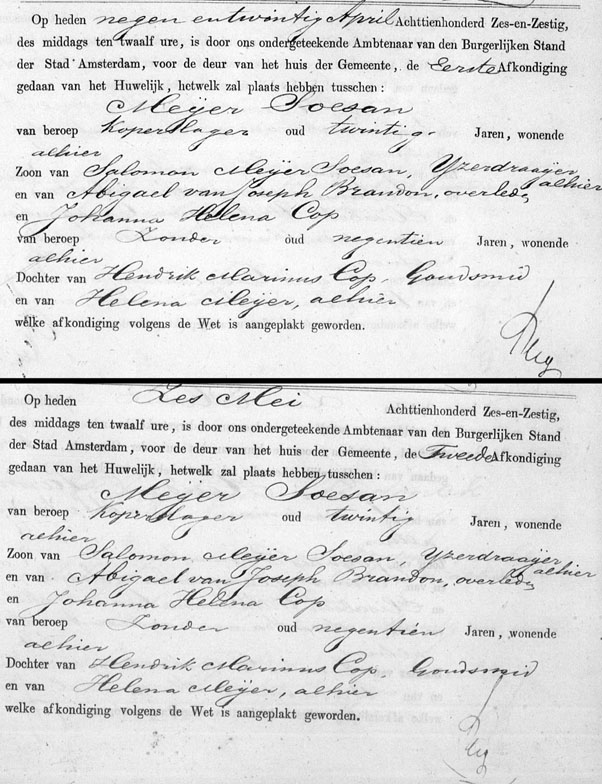 Op heden negen en twintig April Achttienhonderd Zes-en-Zestig,
des middags ten twaalf ure, is door ons ondergeteekende Ambtenaar van den Burgerlijken Stand
der Stad Amsterdam, voor de deur van het huis der Gemeente, de Eerste Afkondiging
gedaan van het Huwelijk, hetwelk zal plaats hebben tusschen:
Meijer Soesan
van beroep Koperslager oud twintig Jaren, wonende
alhier
Zoon van Salomon Meijer Soesan, Yzerdraaijer alhier
en van Abigael van Joseph Brandon, overleden
en Johanna Helena Cop
van beroep Zonder oud negentien Jaren, wonende
alhier
Dochter van Hendrik Marinus Cop, Goudsmid
en van Helena Meijer, alhier
welke afkondiging volgens de Wet is aangeplakt geworden.
Op heden Zes Mei Achttienhonderd Zes-en-Zestig,
des middags ten twaalf ure, is door ons ondergeteekende Ambtenaar van den Burgerlijken Stand
der Stad Amsterdam, voor de deur van het huis der Gemeente, de Tweede Afkondiging
gedaan van het Huwelijk, hetwelk zal plaats hebben tusschen:
Meijer Soesan
van beroep Koperslager oud twintig Jaren, wonende
alhier
Zoon van Salomon Meijer Soesan, Yzerdraaijer alhier
en van Abigael van Joseph Brandon, overleden
en Johanna Helena Cop
van beroep Zonder oud negentien Jaren, wonende
alhier
Dochter van Hendrik Marinus Cop, Goudsmid
en van Helena Meijer, alhier
welke afkondiging volgens de Wet is aangeplakt geworden.